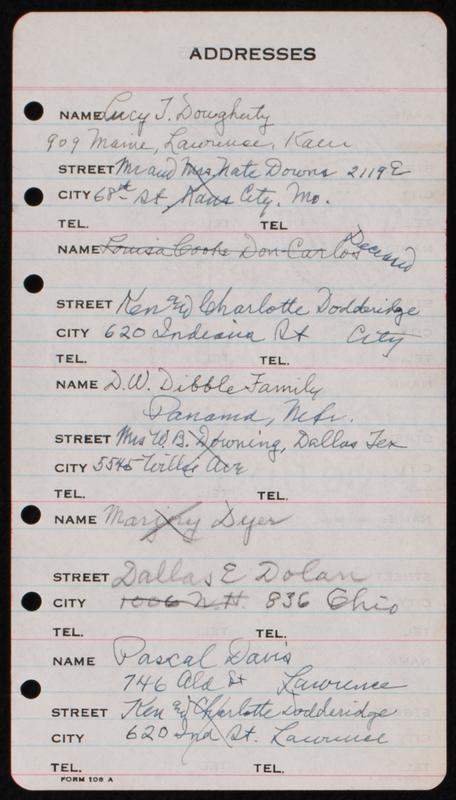 ADDRESSES
NAME Lucy T. Dougherty
909 Maine, Lawrence, Kan
STREET Mr and Mrs. Nate Downs 2119 E
CITY 68th St, Kans City, Mo.
TEL. TEL
NAME Louisa Cooke Don Carlos Deceased
STREET Ken and Charlotte Dodderidge
CITY 620 Indiana St City
TEL. TEL.
NAME D.W. Dibble Family
Panama, Nebr.
STREET Mrs W.B. Downing, Dallas Tex
CITY 5545 Willis Ave
TEL. TEL.
NAME Marjory Dyer
STREET Dallas E Dolan
CITY 1006 N.H. 836 Ohio
TEL. TEL.
NAME Pascal Davis
746 Ala St Lawrence
STREET Ken and Charlotte Dodderidge
CITY 620 Ind St. Lawrence
TEL. TEL.
FORM 108 A